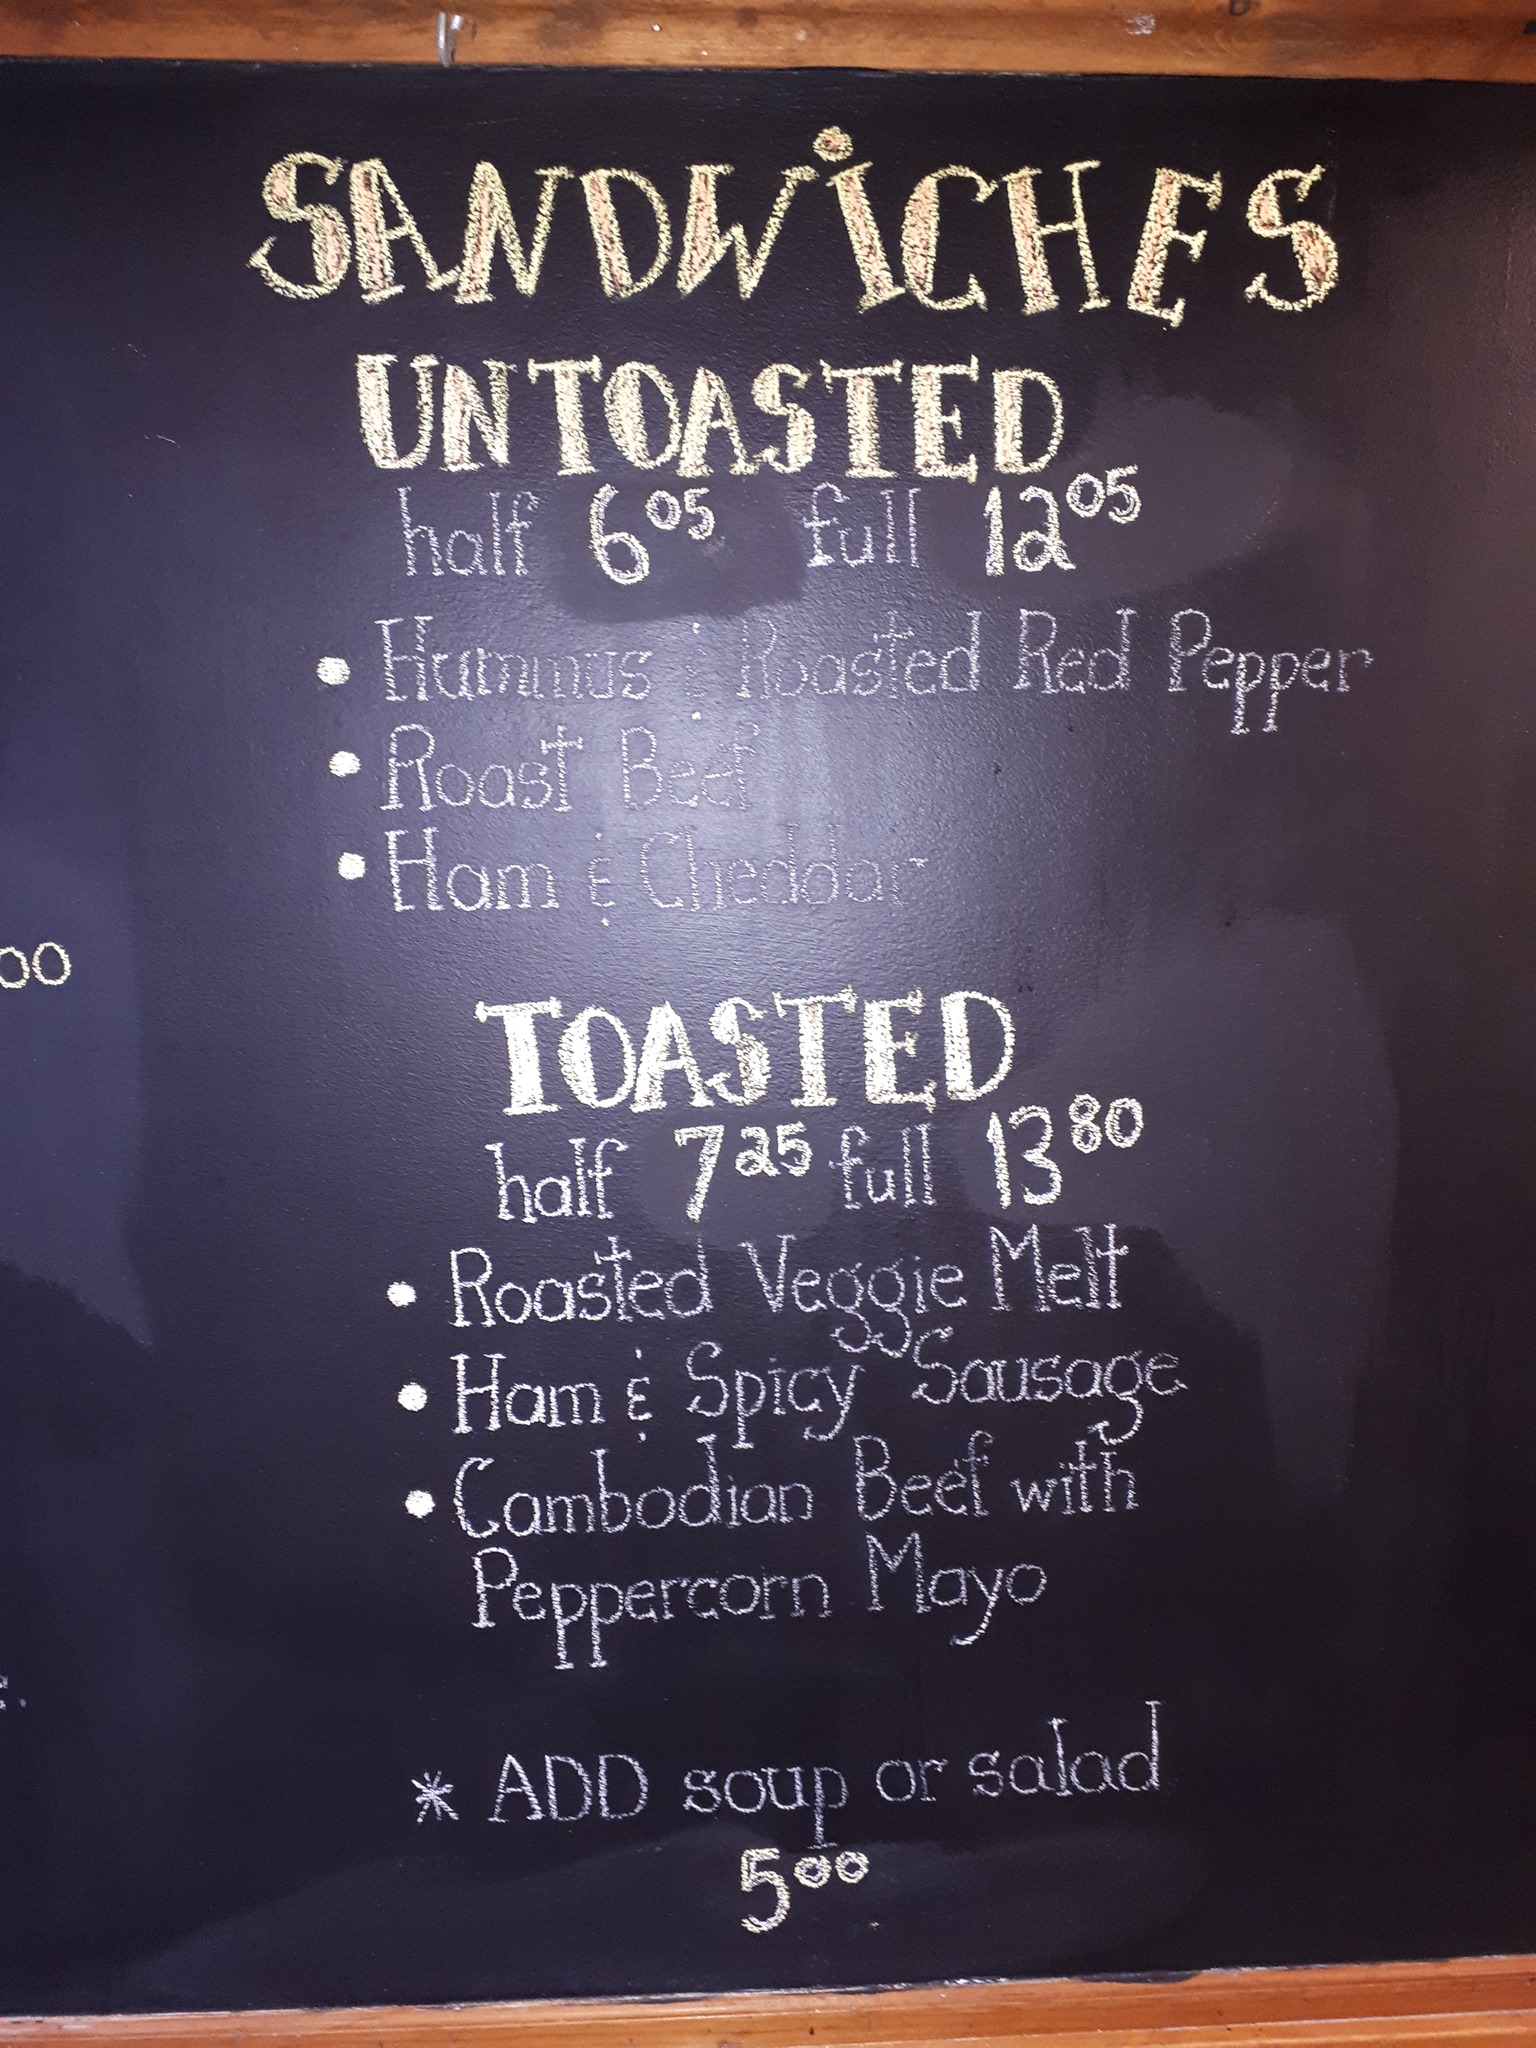 SANDWiCHES
UNTOASTED
half 6⁰⁵ full 12⁰⁵
• Hummus & Roasted Red Pepper
• Roast Beef
• Ham & Cheddar
00
TOASTED
half 7²⁵ full 13⁸⁰
• Roasted Veggie Melt
• Ham & Spicy Sausage
• Cambodian Beef with
Peppercorn Mayo
* ADD soup or salad
5⁰⁰